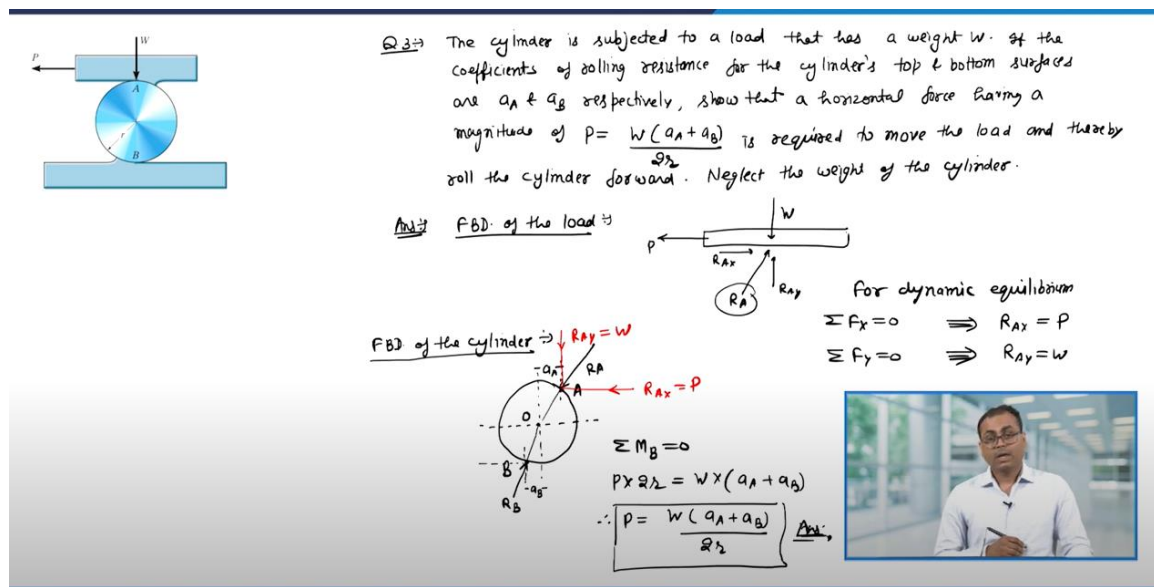 W
P
A
r
B
Q3:→ The cylinder is subjected to a load that has a weight W. If the
coefficients of rolling resistance for the cylinder's top & bottom surfaces
are aA & aB respectively, show that a horizontal force having a
magnitude of P = W(aA + aB)/2r is required to move the load and thereby
roll the cylinder forward. Neglect the weight of the cylinder.
Ans:→ FBD. of the load :→
W
P
RAx
RA
RAy
For dynamic equilibrium
ΣFx = 0 ⟹ RAx = P
ΣFy = 0 ⟹ RAy = W
FBD of the cylinder :→
RAy = W
aA
RA
A
RAx = P
O
B
aB
RB
ΣMB = 0
P × 2r = W × (aA + aB)
∴ P = W(aA + aB)/2r Ans.